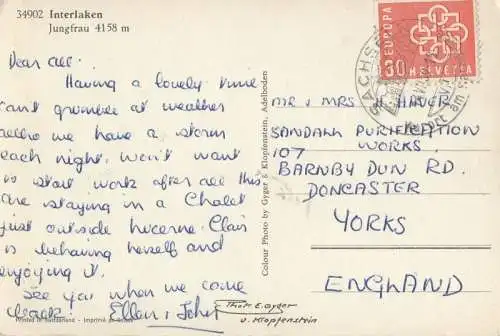 34902 Interlaken
Jungfrau 4158 m
Dear all.
Having a lovely time
cant grumble at weather
altho we have a storm
each night. Won't want
to start work after all this
are staying in a Chalet
just outside Lucerne. Clair
is behaving herself and
enjoying it.
See you when we come
back. Ellen & John
Printed in Switzerland - Imprimé en Suisse
Colour Photo by Gyger & Klopfenstein, Adelboden
EUROPA
30 HELVETIA
SACHS
Kurort am
MR & MRS H
SANDALL PURIFICATION
WORKS.
107
BARNBY DUN RD.
DONCASTER
YORKS
ENGLAND
Phot. E. Gyger
u. Klopfenstein